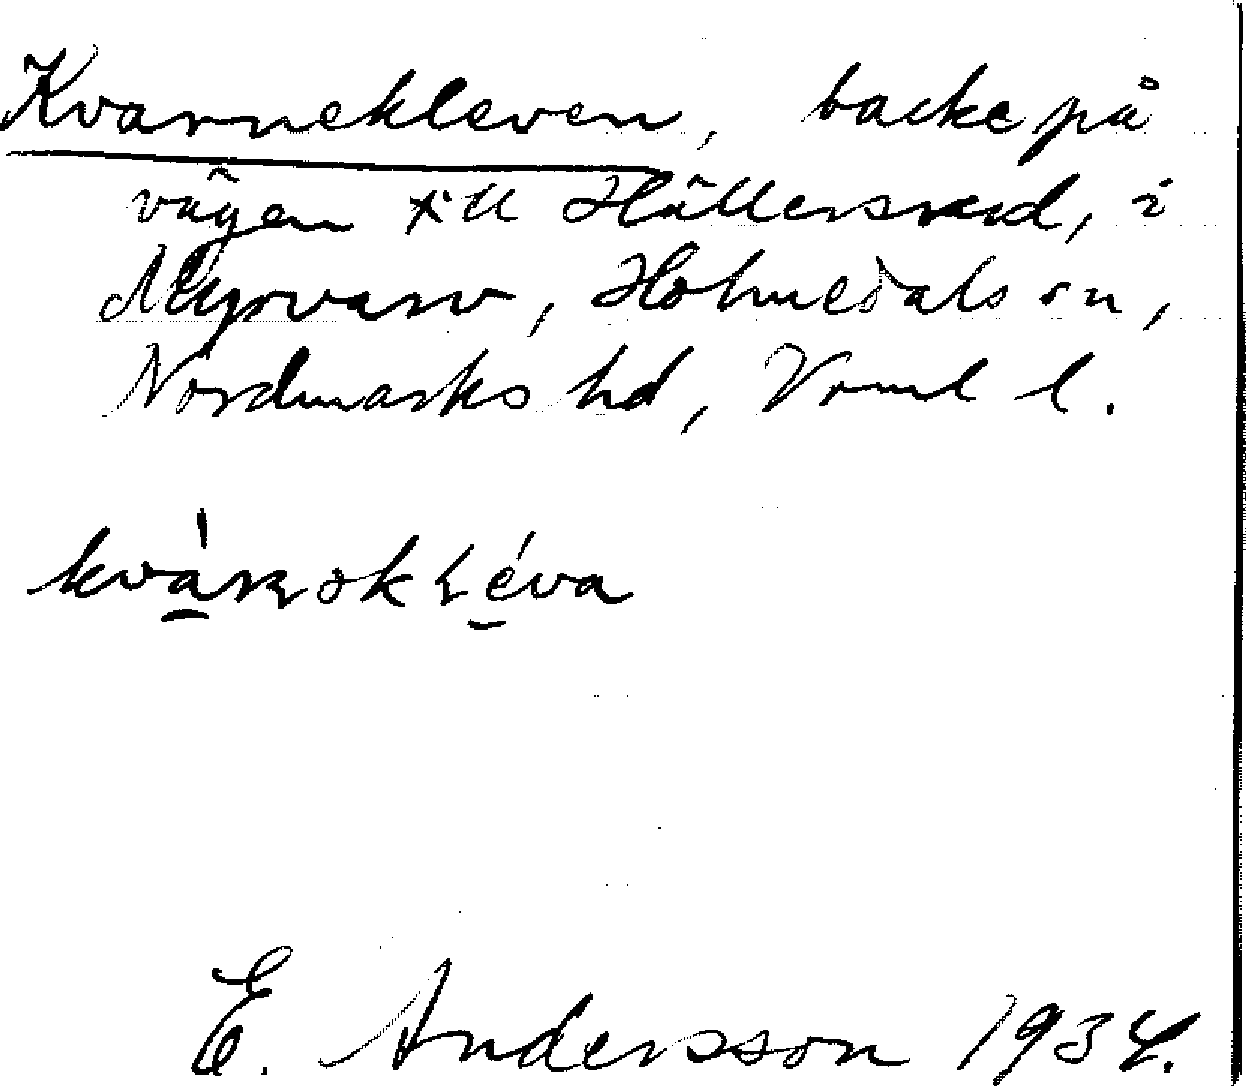 Kvarnekleven, backe på
vägen till Hällersrud, i
Myrvarv, Holmedals sn,
Nordmarks hd, Vrml l.
E. Andersson 1934.